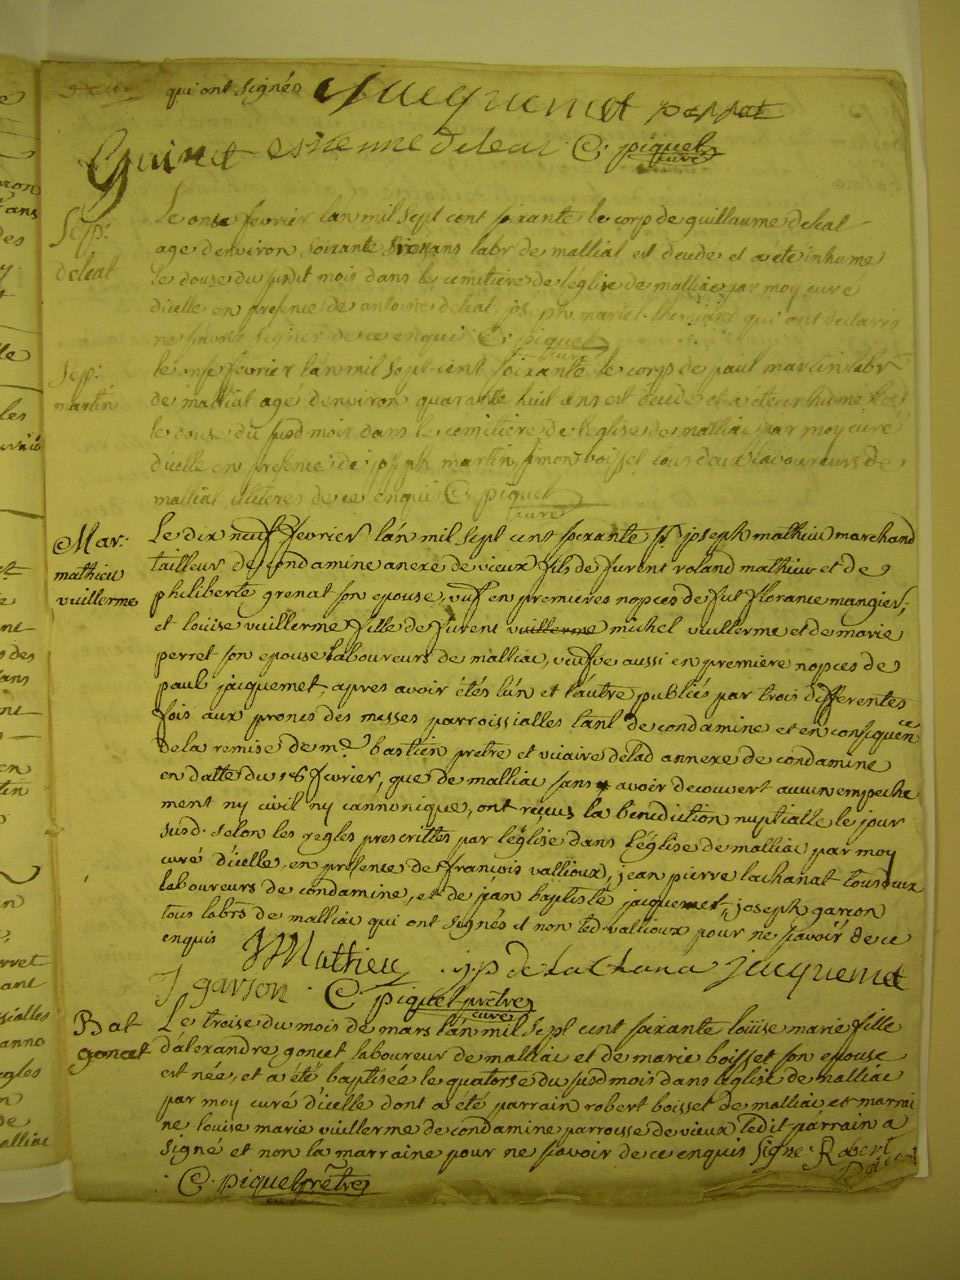 qui ont signés Jacquemet perret
Guinet estienne deleal C. piquet
curé
Sep.
deleal
Le onse fevrier lan mil sept cent soixante le corp de guillaume deleal
age denviron soixante ans labr de malliat est decede et a été inhume
le douse du susdit mois dans le cemitiere de l'église de malliac par moy curé
dicelle en presence de antoine deleal, joseph mariet qui ont declarés
ne savoir signer de ce enquis C. piquet
curé
Sep.
martin
le onse fevrier lan mil sept cent soixante le corps de paul martin labr
de malliat agé denviron quarante huit ans est decede et a été inhumé
le douse du susd mois dans le cemitiere de leglise de malliac par moy curé
dicelle en presence de joseph martin, simon boisset tous deux laboureurs de
malliat illiteres de ce enquis C. piquet
curé
Mar.
mathieu
vuillerme
Le dix neuf fevrier lán mil sept cent soixante sr joseph mathieu marchand
tailleur de condamine anexe de vieux fils de furent roland mathieu et de
philiberte grenat son epouse, vuf en premieres nopces de fut florance mangier,
et louise vuillerme fille de furent vuillerme michel vuillerme et de marie
perret son epouse laboureurs de malliac, veufve aussi en première nopces de
paul jacquemet, apres avoir étés lún et láutre publiés par trois differentes
fois aux prones des messes parroissialles tant de condamine et en consequence
de la remise de mre bastien prêtre et vicaire delad annexe de condamine
en datte du 18 fevrier, que de malliac sans avoir decouvert aucun empeche
ment ny civil ny cannonique, ont reçus la benediction nuptialle le jour
susd. selon les regles prescrittes par léglise dans léglise de malliac par moy
curé dícelle en présence de François vallioux, jean pierre lachanat tous deux
laboureurs de condamine, et de jéan baptiste jacquemet, joseph garson
tous labrs de malliac qui ont signés et non led vallioux pour ne sçavoir de ce
enquis JMathieu j.p de la Chana jacquemet
J garson. C piquet prêtre
curé
Bat
goncet
Le treise du mois de mars lán mil sept cent soixante louise marie fille
dalexandre goncet laboureur de malliac et de marie boisset son epouse
est née, et a été baptisée le quatorse du susd mois dans léglise de malliac
par moy curé dícelle dont a été parrain robert boisset de malliac et marrai
ne louise marie vuillerme de condamine parroisse de vieux ledit parrain a
signé et non la marraine pour ne sçavoir de ce enquis signe Robert
Boisset
C. piquet prêtre